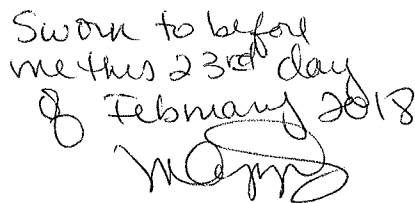 Sworn to before
me this 23rd day
of February 2018